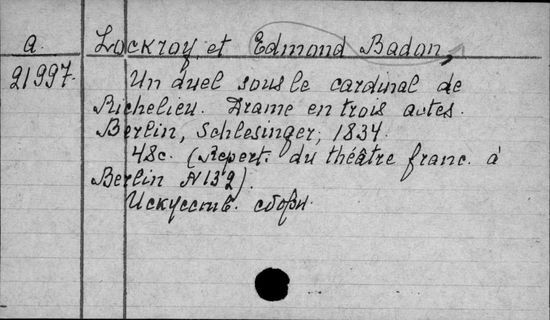 a. Lockroy, et Edmond Badon,
21997. Un duel sous le cardinal de
Richelieu. Drame en trois actes.
Berlin, Schlesinger, 1834.
48c. (Repert. du théâtre franc. à
Berlin N 132).
Искусств. сборн.